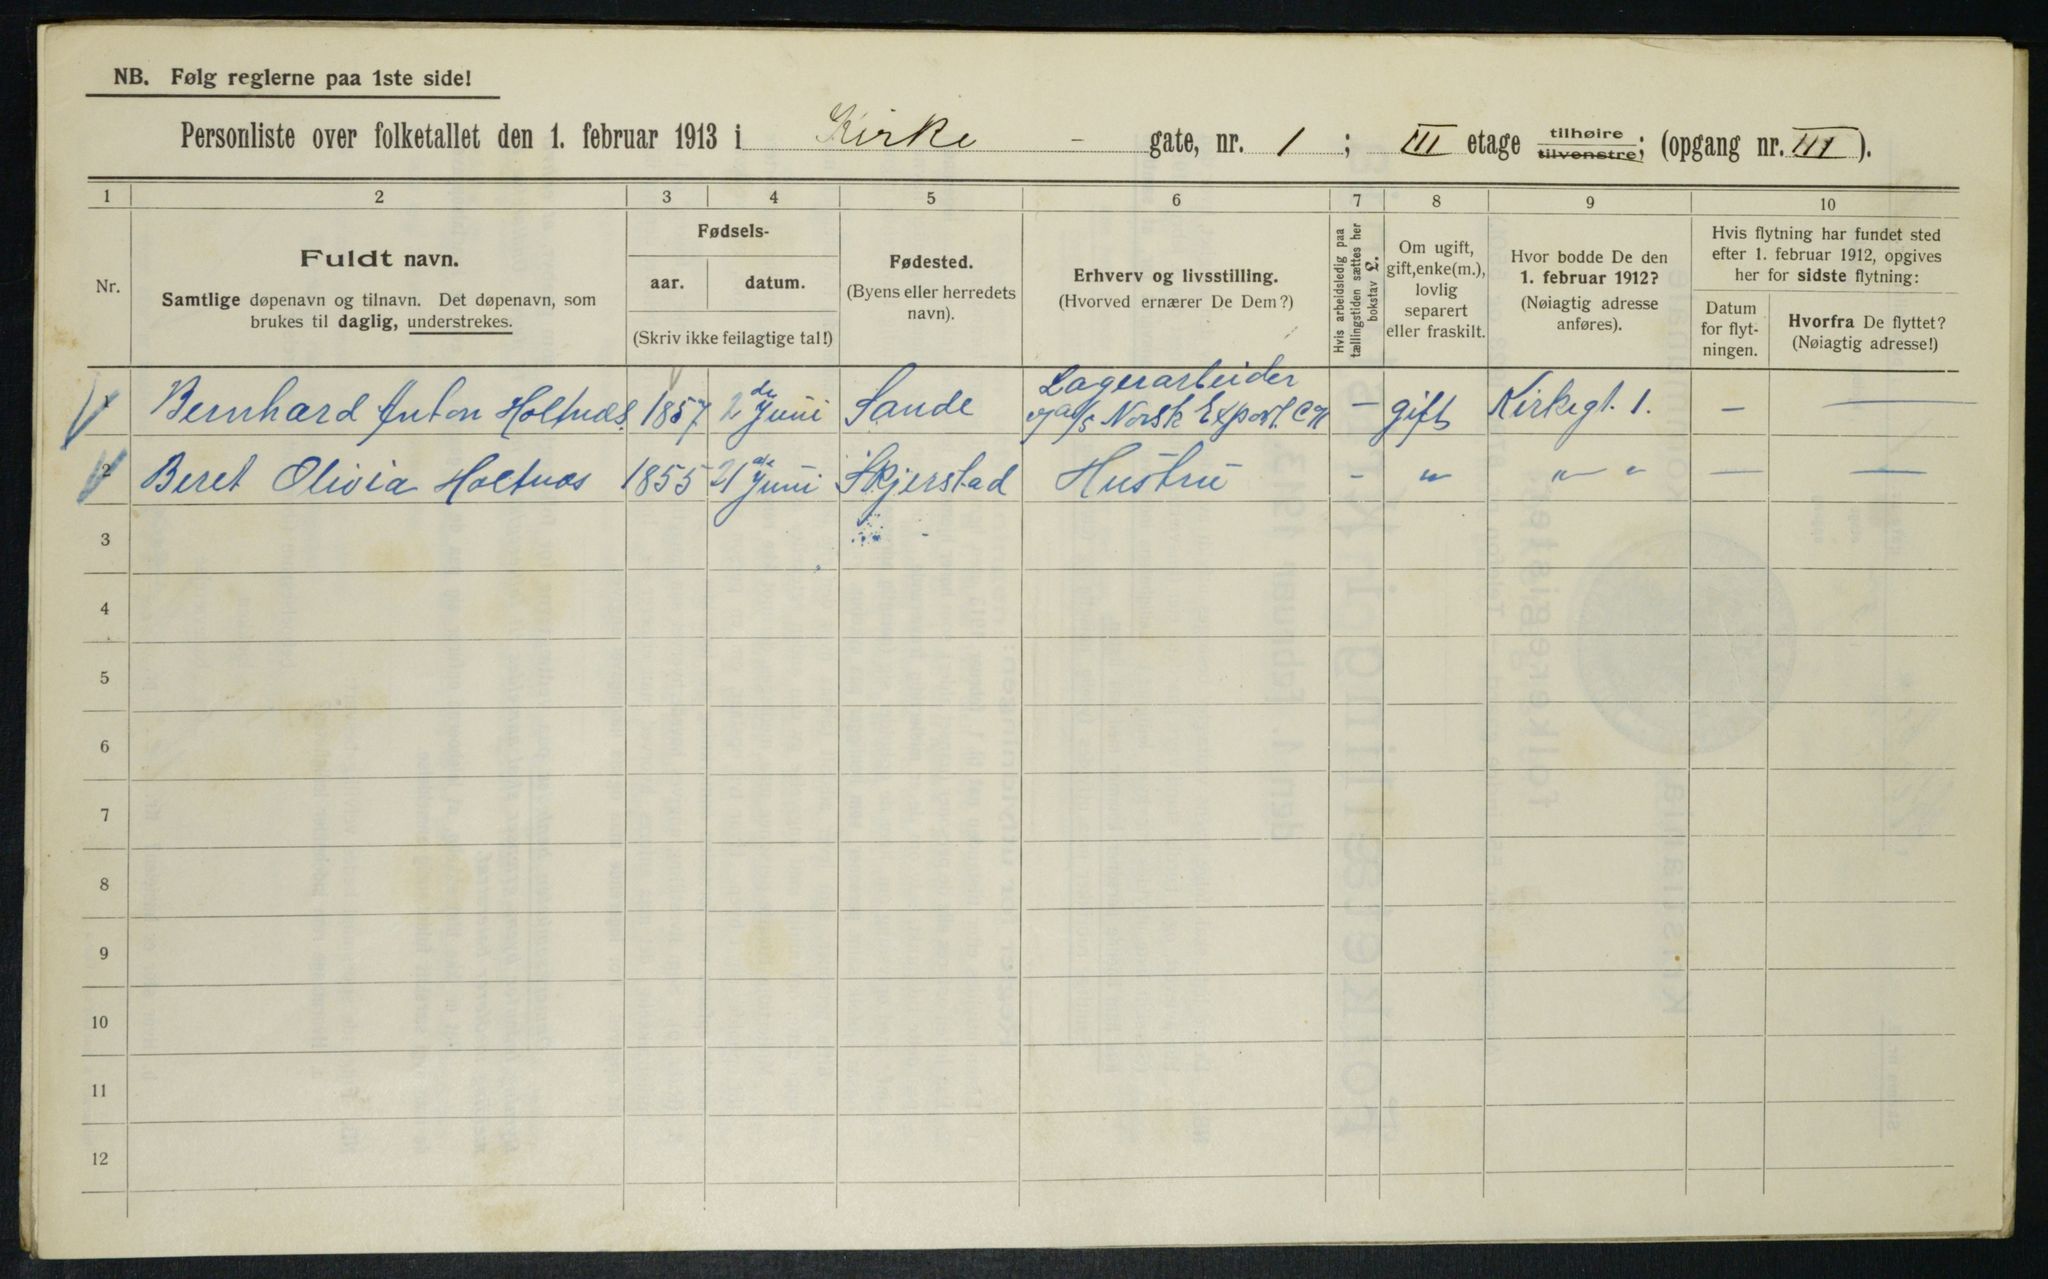 NB. Følg reglerne paa 1ste side!
Personliste over folketallet den 1. februar 1913 i Kirke - gate, nr. 1 ; III etage tilhøire tilvenstre; (opgang nr. III ).
1 2 3 4 5 6 7 8 9 10
Nr.
Fuldt navn.
Samtlige døpenavn og tilnavn. Det døpenavn, som
brukes til daglig, understrekes.
Fødsels-
aar. datum.
(Skriv ikke feilagtige tal!)
Fødested.
(Byens eller herredets
navn).
Erhverv og livsstilling.
(Hvorved ernærer De Dem?)
Hvis arbeidsledig paa
tællingstiden sættes her
bokstav L.
Om ugift,
gift, enke(m.),
lovlig
separert
eller fraskilt.
Hvor bodde De den
1. februar 1912?
(Nøiagtig adresse
anføres).
Hvis flytning har fundet sted
efter 1. februar 1912, opgives
her for sidste flytning:
Datum
for flyt-
ningen.
Hvorfra De flyttet?
(Nøiagtig adresse!)
1 Bernhard Anton Holtnæs. 1857 2de Juni Sande Lagerarbeider
a/s Norsk Export. - gift Kirkegt. 1. - —
2 Beret Olivia Holtnæs 1855 21de Juni Skjerstad Hustru - " " " — —
3
4
5
6
7
8
9
10
11
12